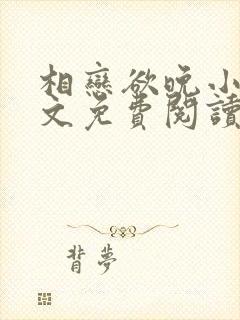 相戀欲晚小
文免費閱讀
背夢